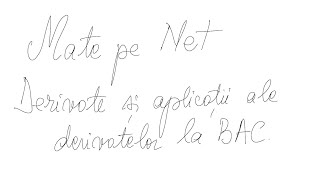 Mate pe Net
Derivate și aplicații ale
derivatelor la BAC.